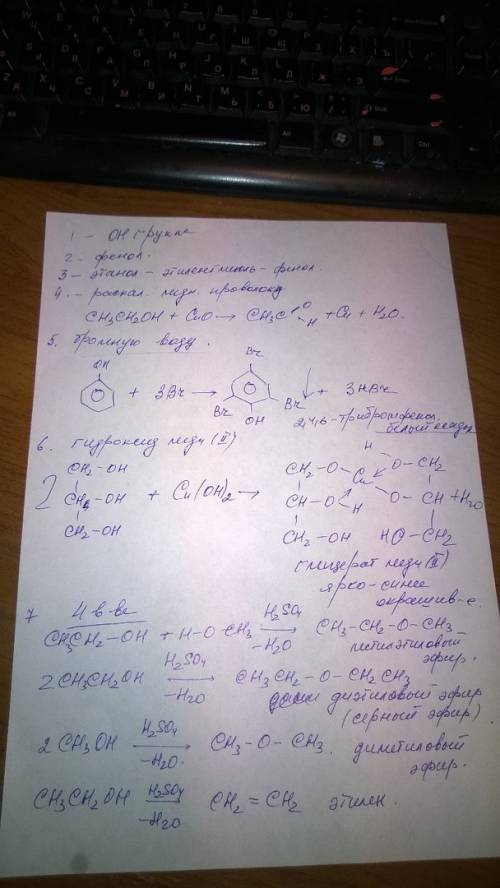 1 – ОН группа
2 – фенол.
3 – этанол – этиленгликоль – фенол.
4. – раскал. медн. проволока
CH₃CH₂OH + CuO → CH₃C O H + Cu + H₂O.
5. бромную воду.
OH + 3Br → Br Br Br OH ↓ + 3HBr
2,4,6-трибромфенол,
белый осадок
6. гидроксид меди (II)
2 CH₂-OH CH-OH CH₂-OH + Cu(OH)₂ → CH₂-O CH-O H CH₂-OH Cu H O-CH₂ O-CH HO-CH₂ + H₂O
глицерат меди (II)
ярко-синее
окрашив-е.
7 4 в-ва
CH₃CH₂-OH + H-O-CH₃ H₂SO₄ → -H₂O CH₃-CH₂-O-CH₃
метилэтиловый
эфир.
2CH₃CH₂OH H₂SO₄ → -H₂O CH₃CH₂-O-CH₂CH₃
диэтиловый эфир
(серный эфир).
2CH₃OH H₂SO₄ → -H₂O. CH₃-O-CH₃. диметиловый
эфир.
CH₃CH₂OH H₂SO₄ → -H₂O CH₂=CH₂ этилен.